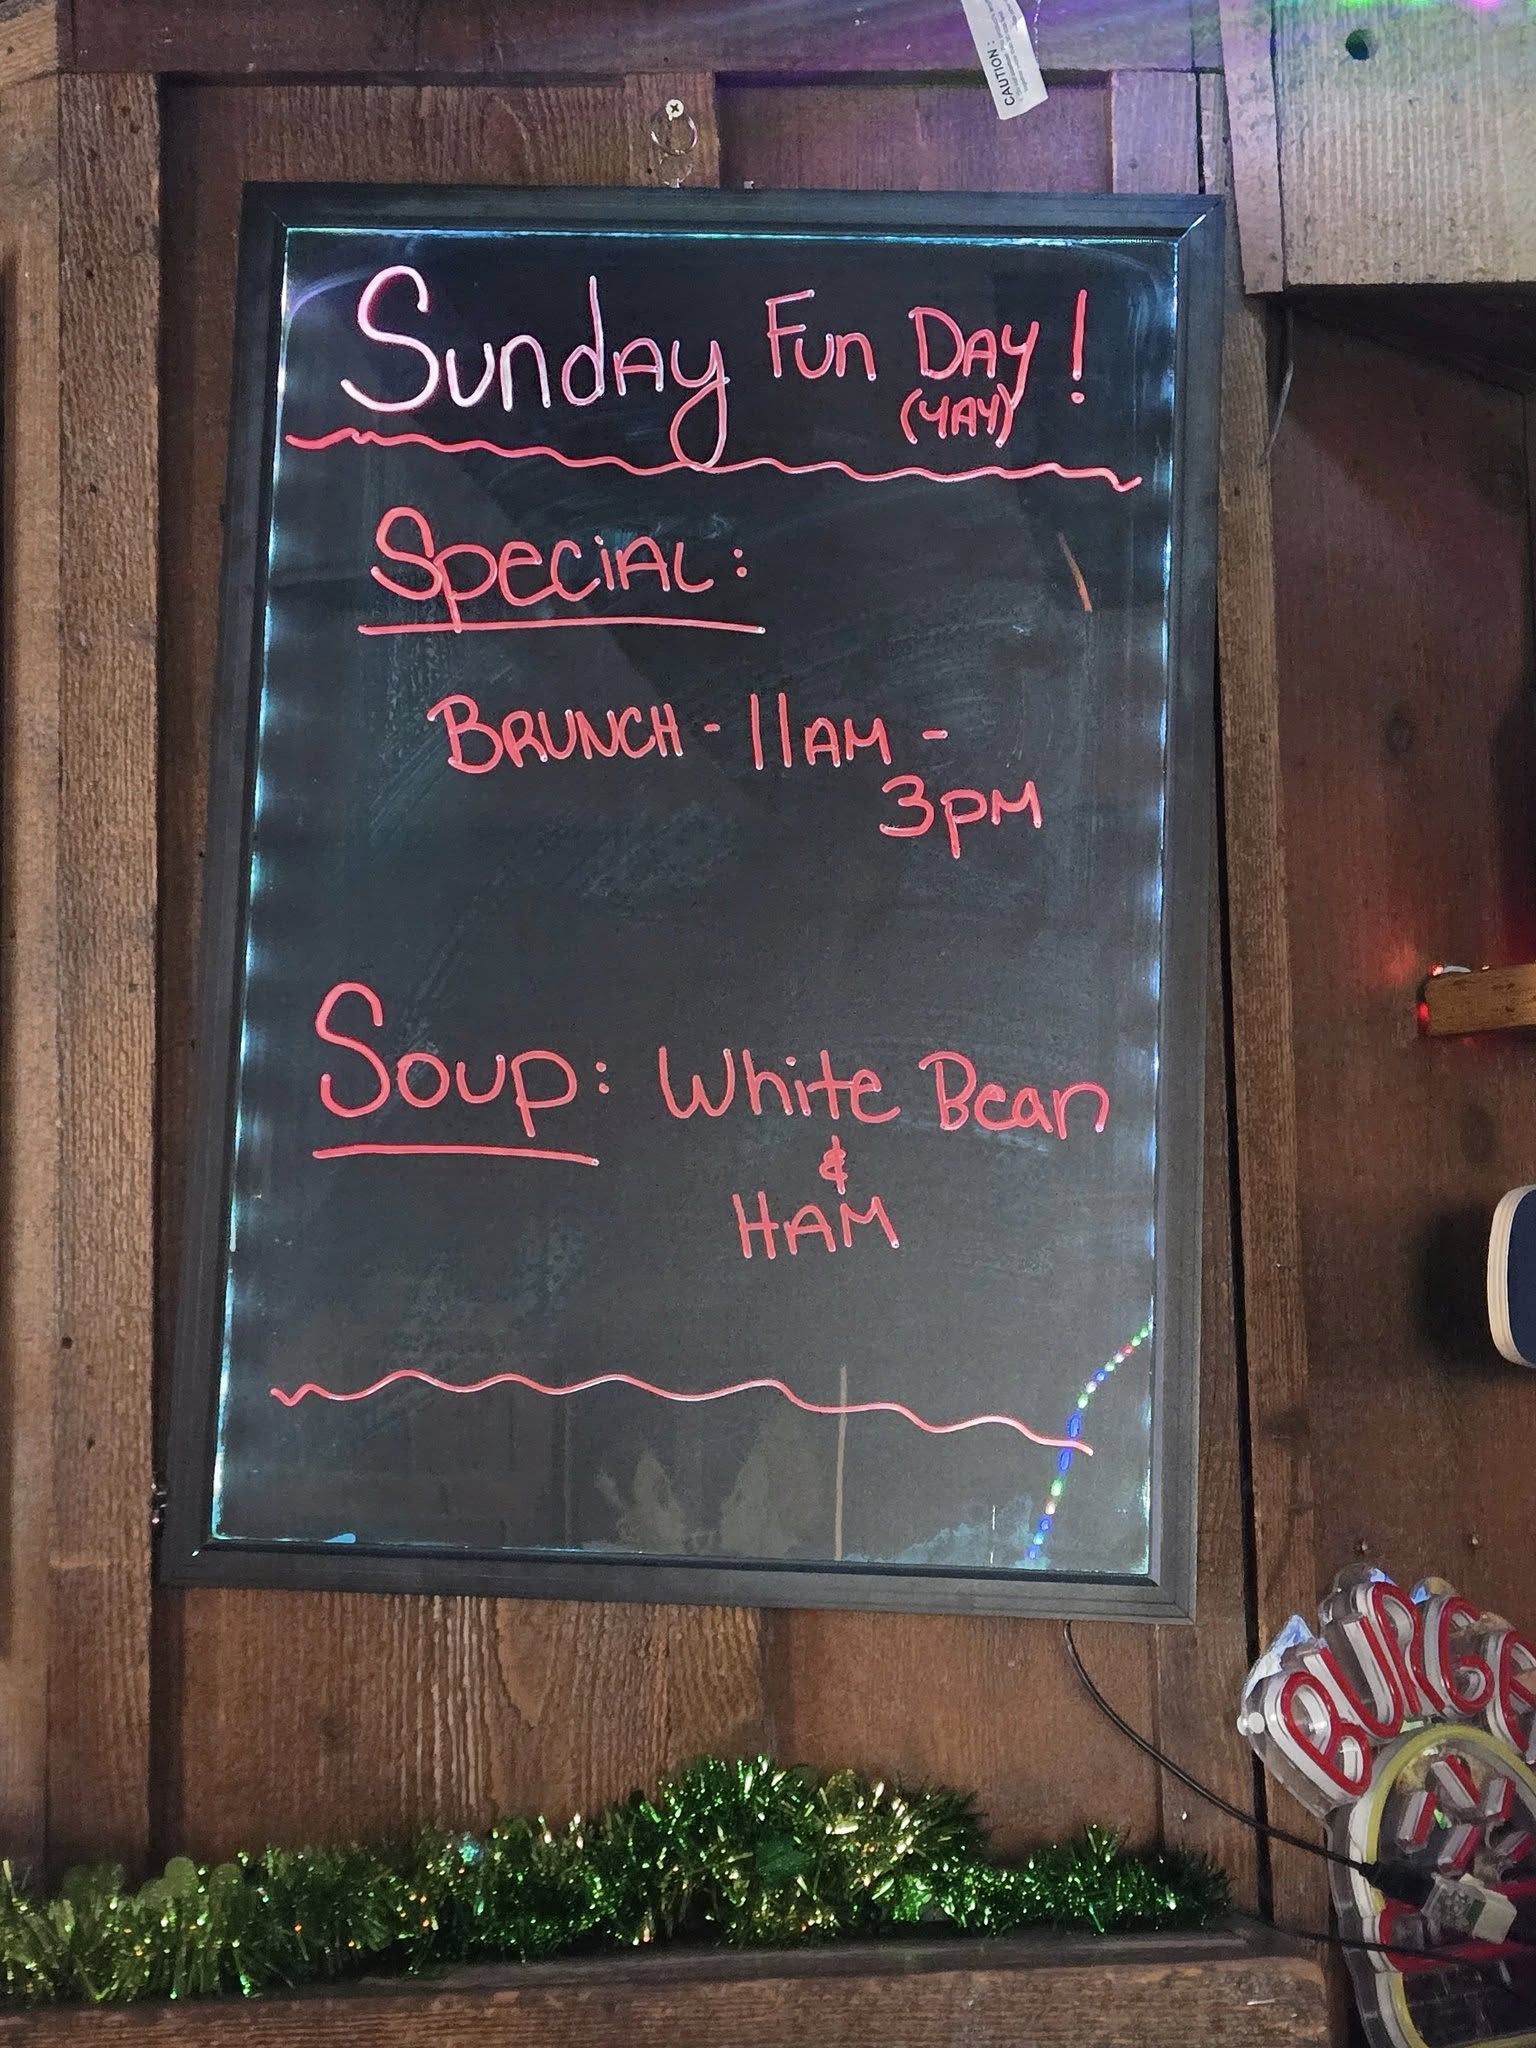 CAUTION:
Sunday Fun Day!
(YAY)
Special:
BRUNCH - 11AM -
3PM
Soup: White Bean
&
HAM
BURGE